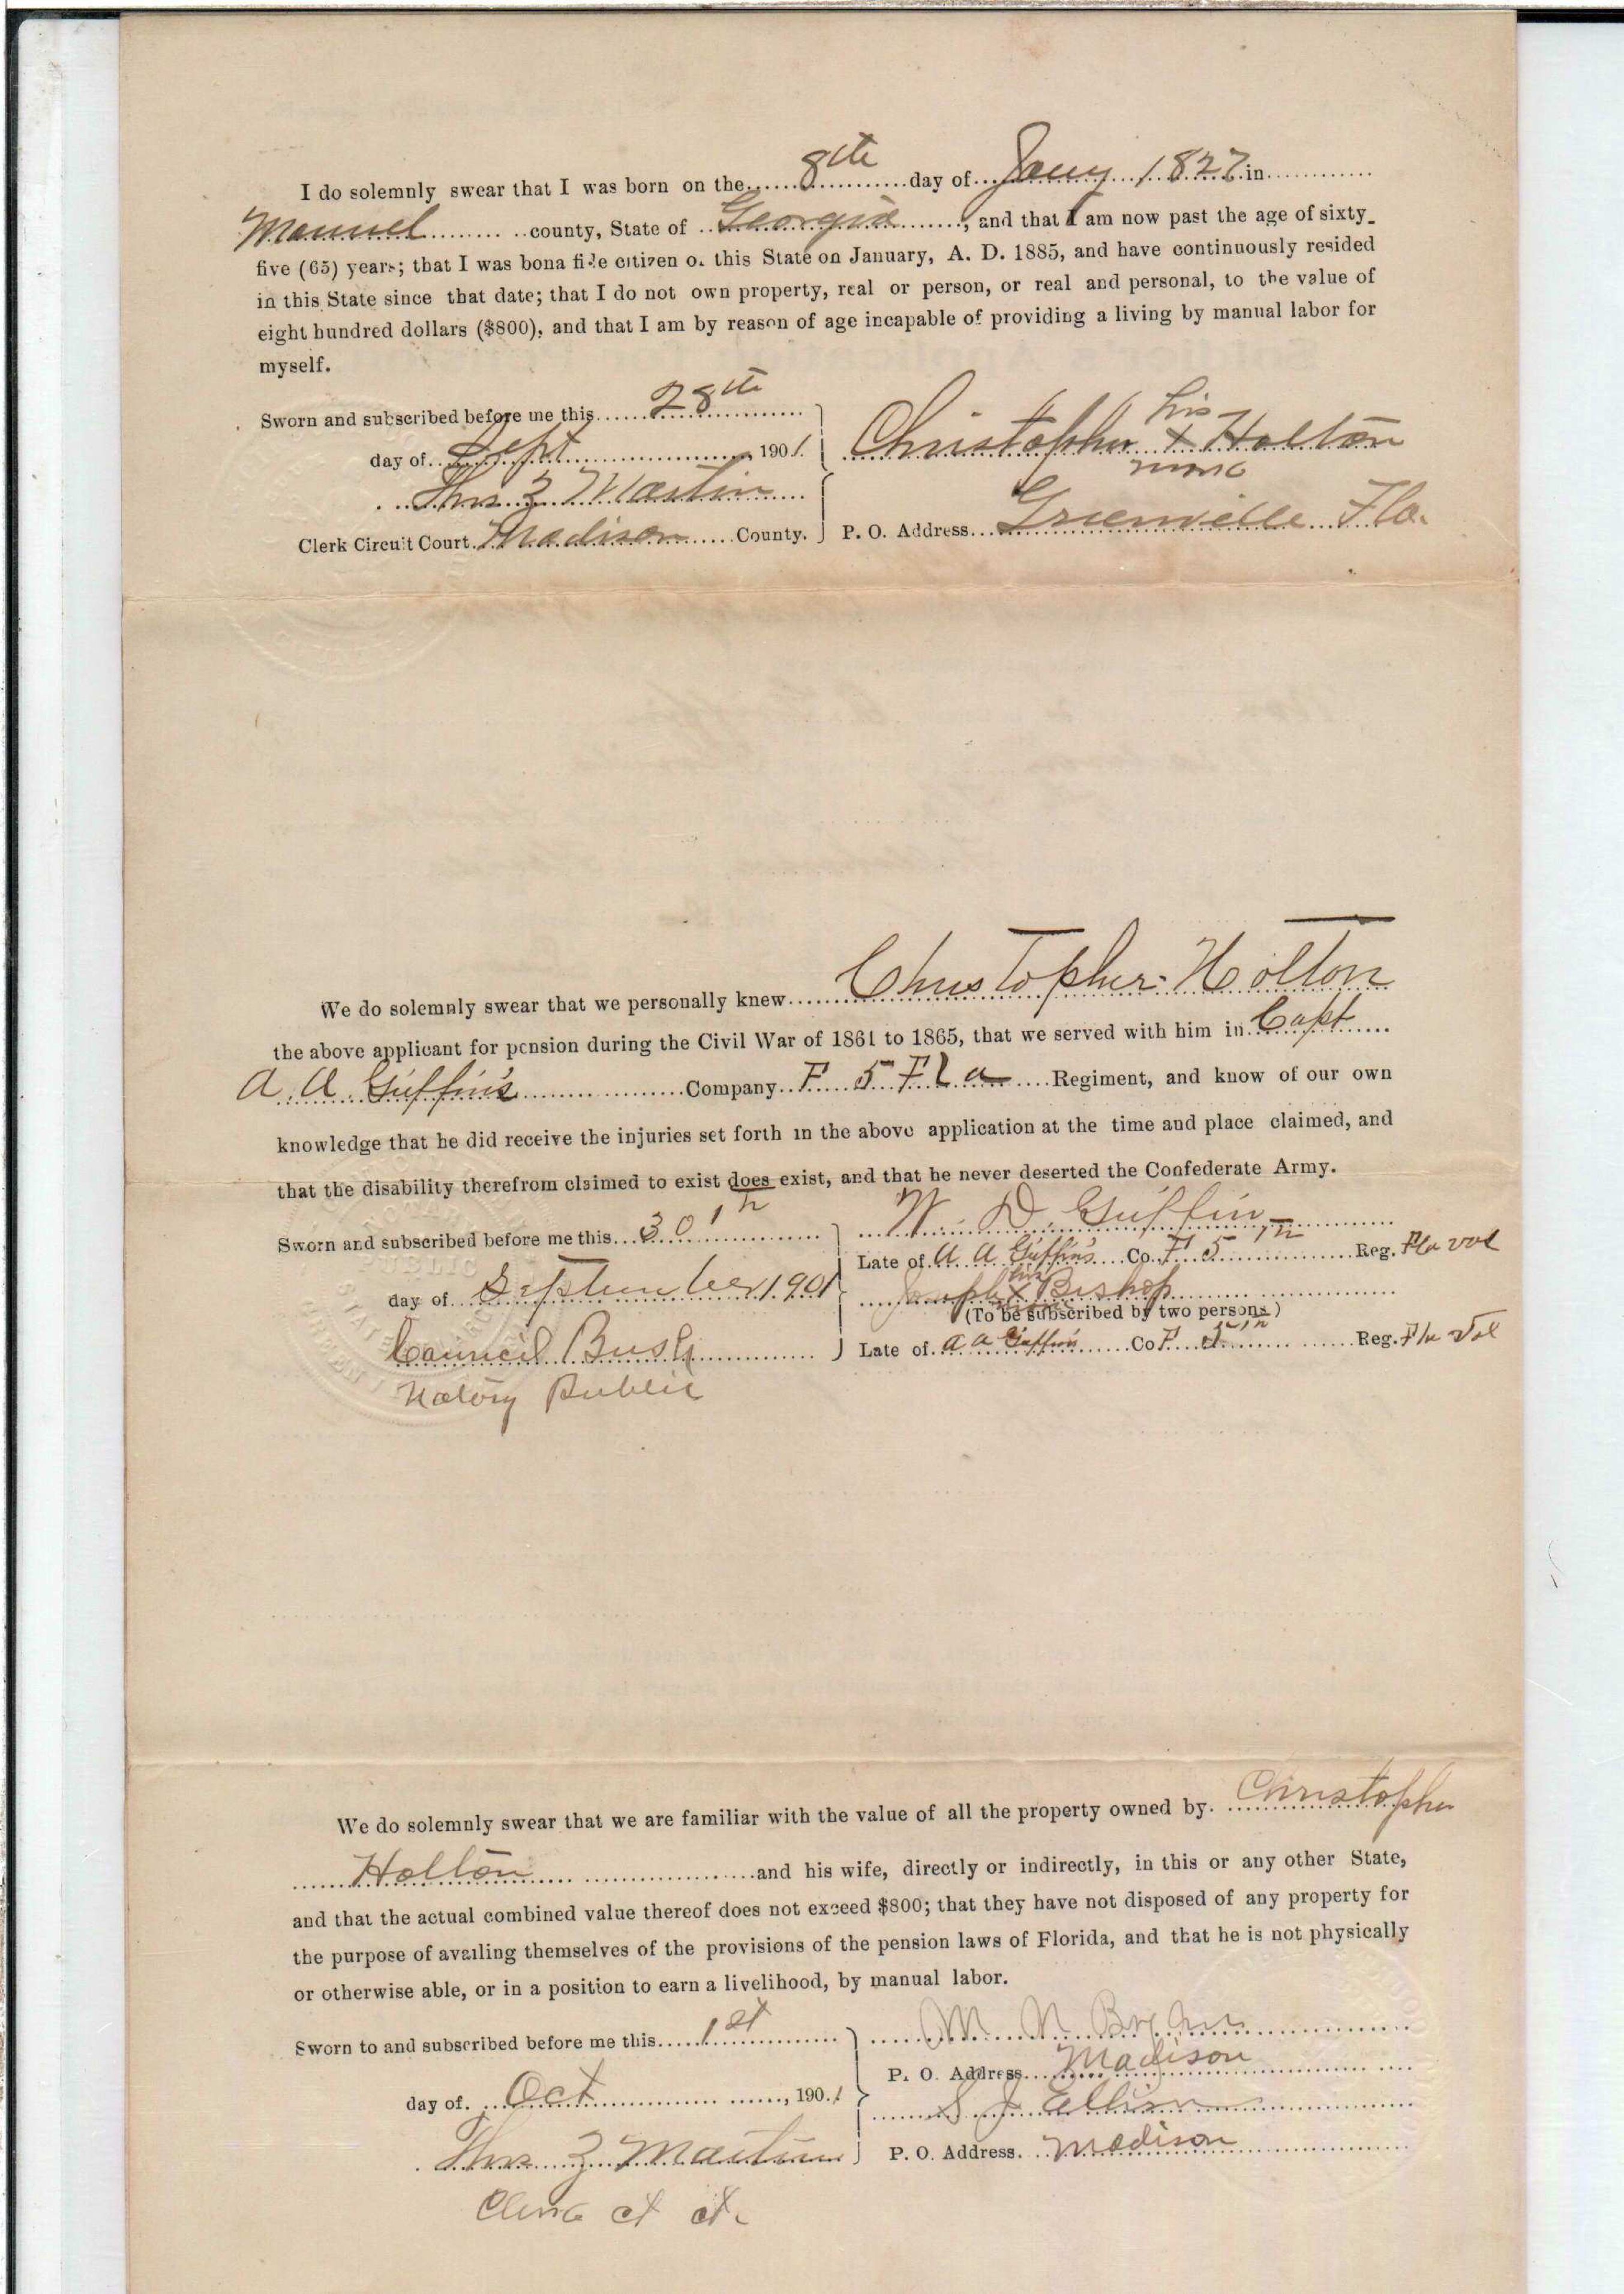 I do solemnly swear that I was born on the 8th day of Jany 1827 in
Manuel county, State of Georgia, and that I am now past the age of sixty-
five (65) years; that I was bona fide citizen of this State on January, A. D. 1885, and have continuously resided
in this State since that date; that I do not own property, real or person, or real and personal, to the value of
eight hundred dollars ($800), and that I am by reason of age incapable of providing a living by manual labor for
myself.
Sworn and subscribed before me this 28th
day of Sept 1901
Thos Z Martin
Clerk Circuit Court Madison County.
his
Christopher X Holton
mark
P. O. Address Greenville Fla.
We do solemnly swear that we personally knew Christopher Holton
the above applicant for pension during the Civil War of 1861 to 1865, that we served with him in Capt
A. A. Guffin's Company F 5 Fla Regiment, and know of our own
knowledge that he did receive the injuries set forth in the above application at the time and place claimed, and
that the disability therefrom claimed to exist does exist, and that he never deserted the Confederate Army.
Sworn and subscribed before me this 30th
day of September 1901
Council Bush
Notory Public
W. D. Guffin
Late of A A Guffin's Co. F 5th Reg. Fla vol
his
Joseph X Bishop
mark
(To be subscribed by two persons)
Late of A A Guffin's Co F 5th Reg. Fla Vol
We do solemnly swear that we are familiar with the value of all the property owned by. Christopher
Holton and his wife, directly or indirectly, in this or any other State,
and that the actual combined value thereof does not exceed $800; that they have not disposed of any property for
the purpose of availing themselves of the provisions of the pension laws of Florida, and that he is not physically
or otherwise able, or in a position to earn a livelihood, by manual labor.
Sworn to and subscribed before me this 1st
day of. Oct, 1901
Thos Z Martin
Clerk ct ct.
M. N.
P. O. Address Madison
S J
P. O. Address. Madison